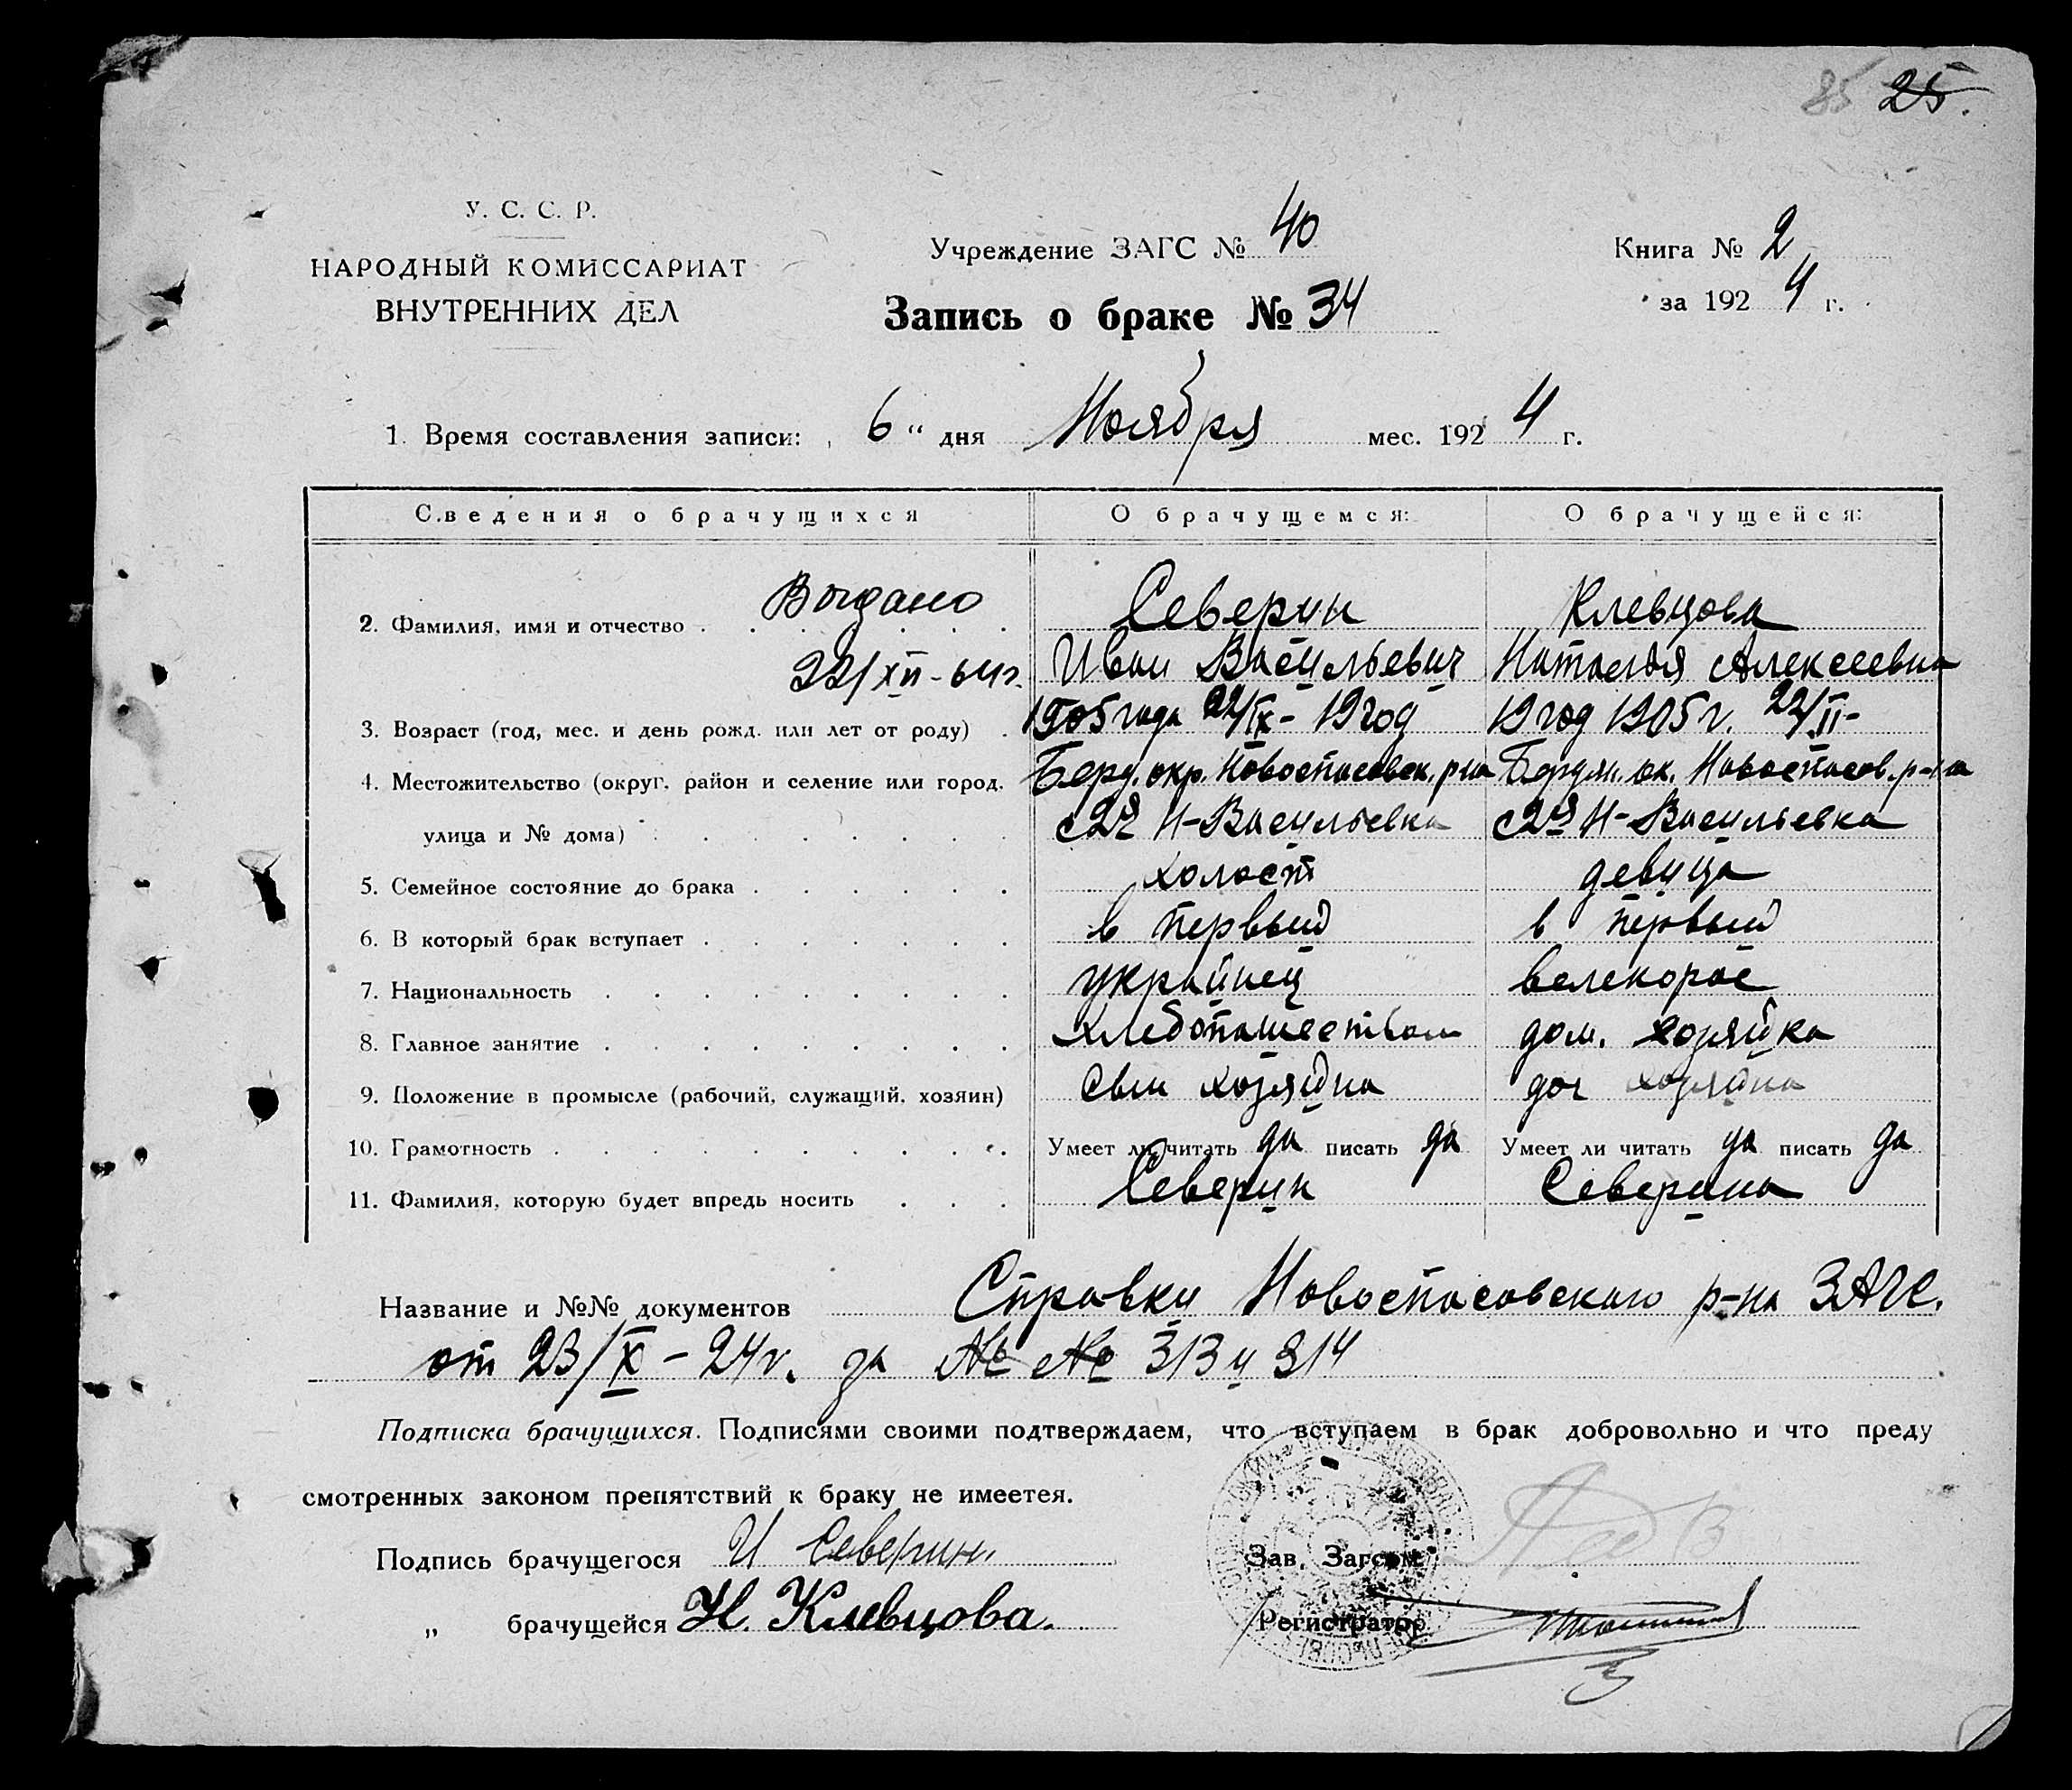 85 25.
У. С. С. Р.
НАРОДНЫЙ КОМИССАРИАТ
ВНУТРЕННИХ ДЕЛ
Учреждение ЗАГС № 40
Запись о браке № 34
Книга № 2
за 1924 г.
1. Время составления записи: 6 " дня Ноября мес. 1924 г.
Сведения о брачущихся О брачущемся: О брачущейся:
Выдано
22/XII-64г.
2. Фамилия, имя и отчество Северин Клевцова
Иван Васильевич Наталья Алексеевна
3. Возраст (год, мес. и день рожд. или лет от роду) 1905 года 22/IX- 19 год 19 год 1905 г. 22/II-
4. Местожительство (округ, район и селение или город, Берд. окр. Новоспасовск. р-на Бердян. ок. Новоспасов. р-на
улица и № дома) Н-Васильевка Н-Васильевка
5. Семейное состояние до брака холост девица
6. В который брак вступает в первый в первый
7. Национальность украйнец велекорос
8. Главное занятие хлебопашеством дом. хозяйка
9. Положение в промысле (рабочий, служащий, хозяин) сын хозяйна доч хозяина
10. Грамотность Умеет ли читать да писать да Умеет ли читать да писать да
11. Фамилия, которую будет впредь носить Северин Северина
Название и №№ документов Справки Новоспасовского р-на ЗАГС.
от 23/X - 24 г. за № № 313 и 314
Подписка брачущихся. Подписями своими подтверждаем, что вступаем в брак добровольно и что преду
смотренных законом препятствий к браку не имеетея.
Подпись брачущегося И Северин.
Зав. Загсом
„ брачущейся Н. Клевцова.
Регистратор